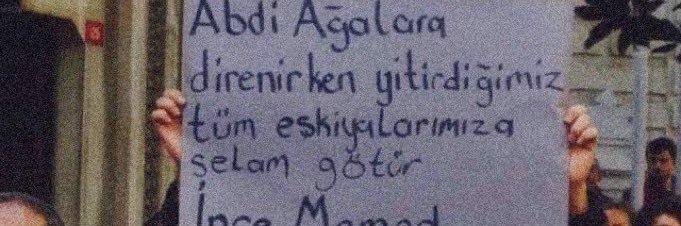 Abdi Ağalara
direnirken yitirdiğimiz
tüm eskiyalarımıza
selam götür
İnce Memed